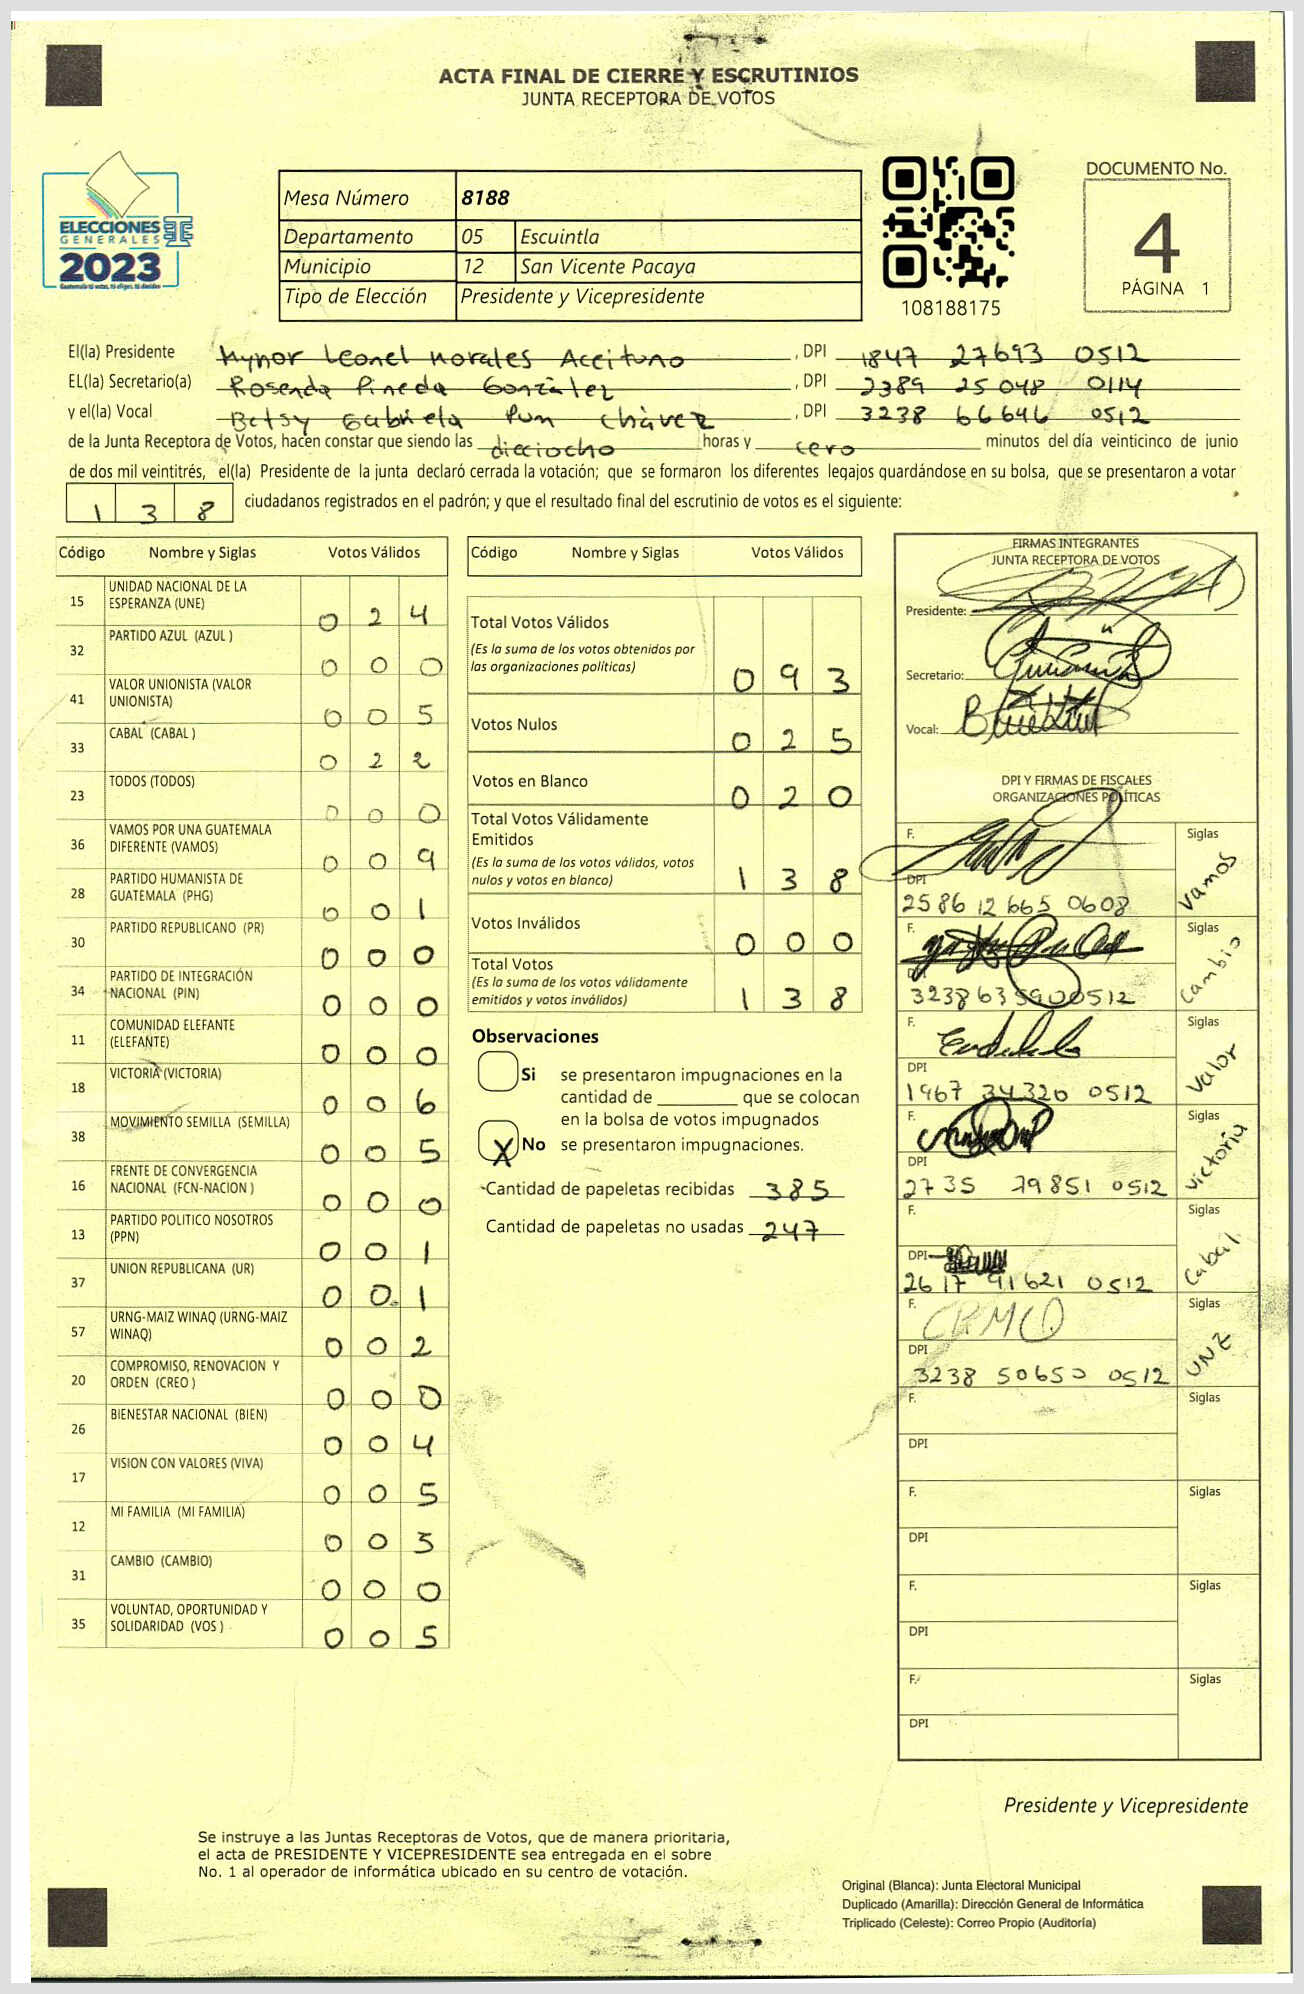 ACTA FINAL DE CIERRE Y ESCRUTINIOS
JUNTA RECEPTORA DE VOTOS
ELECCIONES
GENERALES
2023
Guatemala tú votas, tú eliges, tú decides
Mesa Número 8188
Departamento 05 Escuintla
Municipio 12 San Vicente Pacaya
Tipo de Elección Presidente y Vicepresidente
108188175
DOCUMENTO No.
4
PÁGINA 1
El(la) Presidente Mynor Leonel Morales Aceituno, DPI 1847 27693 0512
EL(la) Secretario(a) Rosenda Pineda González, DPI 2389 25048 0114
y el(la) Vocal Betsy Gabriela Pum Chávez, DPI 3238 66646 0512
de la Junta Receptora de Votos, hacen constar que siendo las dieciocho horas y cero minutos del día veinticinco de junio
de dos mil veintitrés, el(la) Presidente de la junta declaró cerrada la votación; que se formaron los diferentes legajos quardándose en su bolsa, que se presentaron a votar
138 ciudadanos registrados en el padrón; y que el resultado final del escrutinio de votos es el siguiente:
Código Nombre y Siglas Votos Válidos
15 UNIDAD NACIONAL DE LA ESPERANZA (UNE) 0 2 4
32 PARTIDO AZUL (AZUL ) 0 0 0
41 VALOR UNIONISTA (VALOR UNIONISTA) 0 0 5
33 CABAL (CABAL ) 0 2 2
23 TODOS (TODOS) 0 0 0
36 VAMOS POR UNA GUATEMALA DIFERENTE (VAMOS) 0 0 9
28 PARTIDO HUMANISTA DE GUATEMALA (PHG) 0 0 1
30 PARTIDO REPUBLICANO (PR) 0 0 0
34 PARTIDO DE INTEGRACIÓN NACIONAL (PIN) 0 0 0
11 COMUNIDAD ELEFANTE (ELEFANTE) 0 0 0
18 VICTORIA (VICTORIA) 0 0 6
38 MOVIMIENTO SEMILLA (SEMILLA) 0 0 5
16 FRENTE DE CONVERGENCIA NACIONAL (FCN-NACION ) 0 0 0
13 PARTIDO POLITICO NOSOTROS (PPN) 0 0 1
37 UNION REPUBLICANA (UR) 0 0 1
57 URNG-MAIZ WINAQ (URNG-MAIZ WINAQ) 0 0 2
20 COMPROMISO, RENOVACION Y ORDEN (CREO ) 0 0 0
26 BIENESTAR NACIONAL (BIEN) 0 0 4
17 VISION CON VALORES (VIVA) 0 0 5
12 MI FAMILIA (MI FAMILIA) 0 0 3
31 CAMBIO (CAMBIO) 0 0 0
35 VOLUNTAD, OPORTUNIDAD Y SOLIDARIDAD (VOS ) 0 0 5
Código Nombre y Siglas Votos Válidos
Total Votos Válidos 0 9 3
(Es la suma de los votos obtenidos por
las organizaciones políticas)
Votos Nulos 0 2 5
Votos en Blanco 0 2 0
Total Votos Válidamente
Emitidos 1 3 8
(Es la suma de los votos válidos, votos
nulos y votos en blanco)
Votos Inválidos 0 0 0
Total Votos 1 3 8
(Es la suma de los votos válidamente
emitidos y votos inválidos)
Observaciones
Si se presentaron impugnaciones en la
cantidad de ________ que se colocan
en la bolsa de votos impugnados
X No se presentaron impugnaciones.
Cantidad de papeletas recibidas 385
Cantidad de papeletas no usadas 247
FIRMAS INTEGRANTES
JUNTA RECEPTORA DE VOTOS
Presidente:
Secretario:
Vocal:
DPI Y FIRMAS DE FISCALES
ORGANIZACIONES POLÍTICAS
F. Siglas Vamos
DPI 2586 12665 0608
F. Siglas Cambio
DPI 3238 63590 0512
F. Siglas Valor
DPI 1967 34320 0512
F. Siglas Victoria
DPI 2735 79851 0512
F. Siglas Cabal
DPI 2617 91621 0512
F. Siglas UNE
DPI 3238 50650 0512
F. Siglas
DPI
F. Siglas
DPI
F. Siglas
DPI
F. Siglas
DPI
Presidente y Vicepresidente
Se instruye a las Juntas Receptoras de Votos, que de manera prioritaria,
el acta de PRESIDENTE Y VICEPRESIDENTE sea entregada en el sobre
No. 1 al operador de informática ubicado en su centro de votación.
Original (Blanca): Junta Electoral Municipal
Duplicado (Amarilla): Dirección General de Informática
Triplicado (Celeste): Correo Propio (Auditoría)